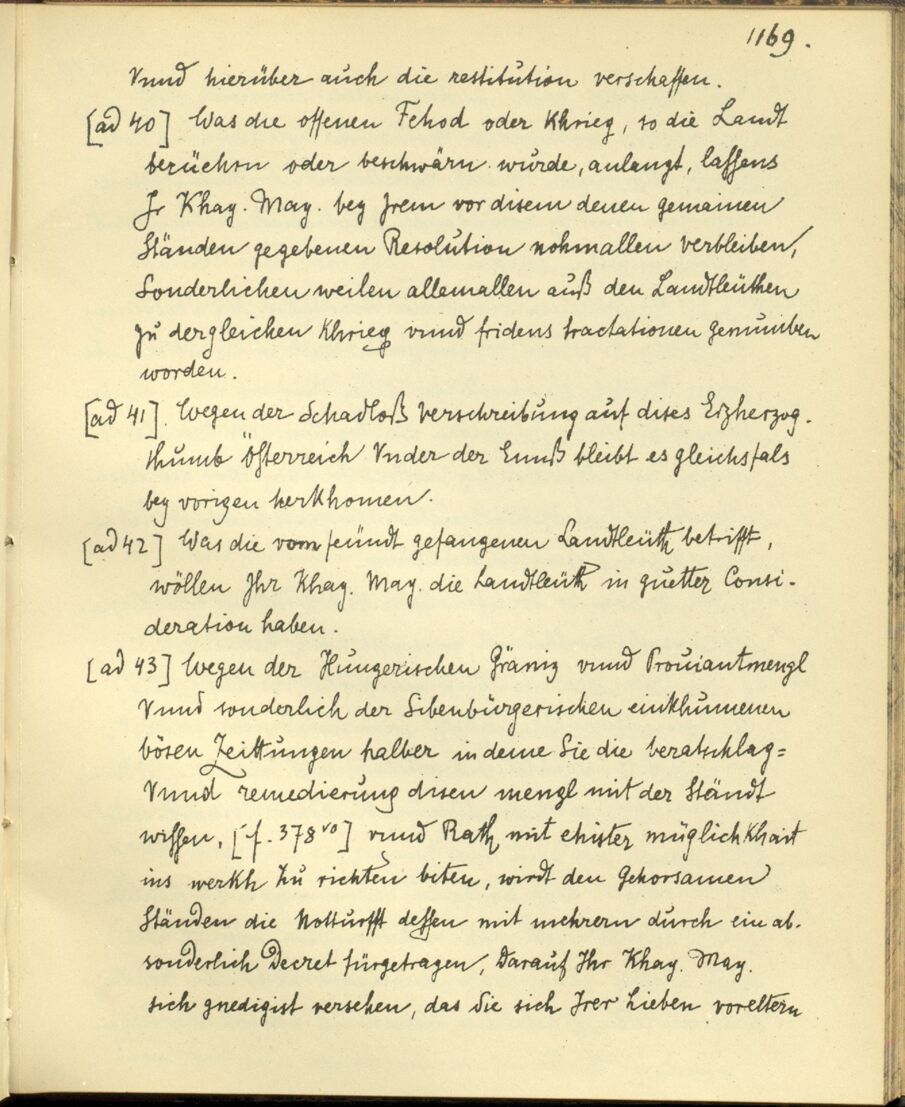 1169.
Vnnd hierüber auch die restitution verschaffen.
[ad 40] Was die offenen Fehod oder Khrieg, so die Landt
berüehrn oder beschwärn wurde, anlangt, lassens
Jr Khay. May. bey Jrem vor disem denen gemainen
Ständen gegebenen Resolution nohmallen verbleiben,
Sonderlichen weilen allemallen auß den Landtleüthen
zu dergleichen Khrieg vnnd fridens tractationen genumben
worden.
[ad 41]. Wegen der Schadloß verschreibung auf dises Erzherzog-
thumb Österreich Vnder der Ennß bleibt es gleichsfals
bey vorigen herkhomen.
[ad 42] Was die vom feündt gefangenen Landtleüth betrifft,
wöllen Jhr Khay. May. die Landtleüth in guetter Consi-
deration haben.
[ad 43] Wegen der Hungerischen Gräniz vnnd Prouiantmengl
Vnnd sonderlich der Sibenbürgerischen einkhumenen
bösen Zeittungen halber in deme Sie die beratschlag=
Vnnd remedierung disen mengl mit der Ständt
wissen, [f. 378 vo] vnnd Rath mit ehister müglichkhait
ins werkh zu richten biten, wirdt den gehorsamen
Ständen die Notturfft dessen mit mehrern durch ein ab-
sonderlich Decret fürgetragen, Darauf Ihr Khay. May.
sich gnedigist versehen, das Sie sich Jrer Lieben voreltern